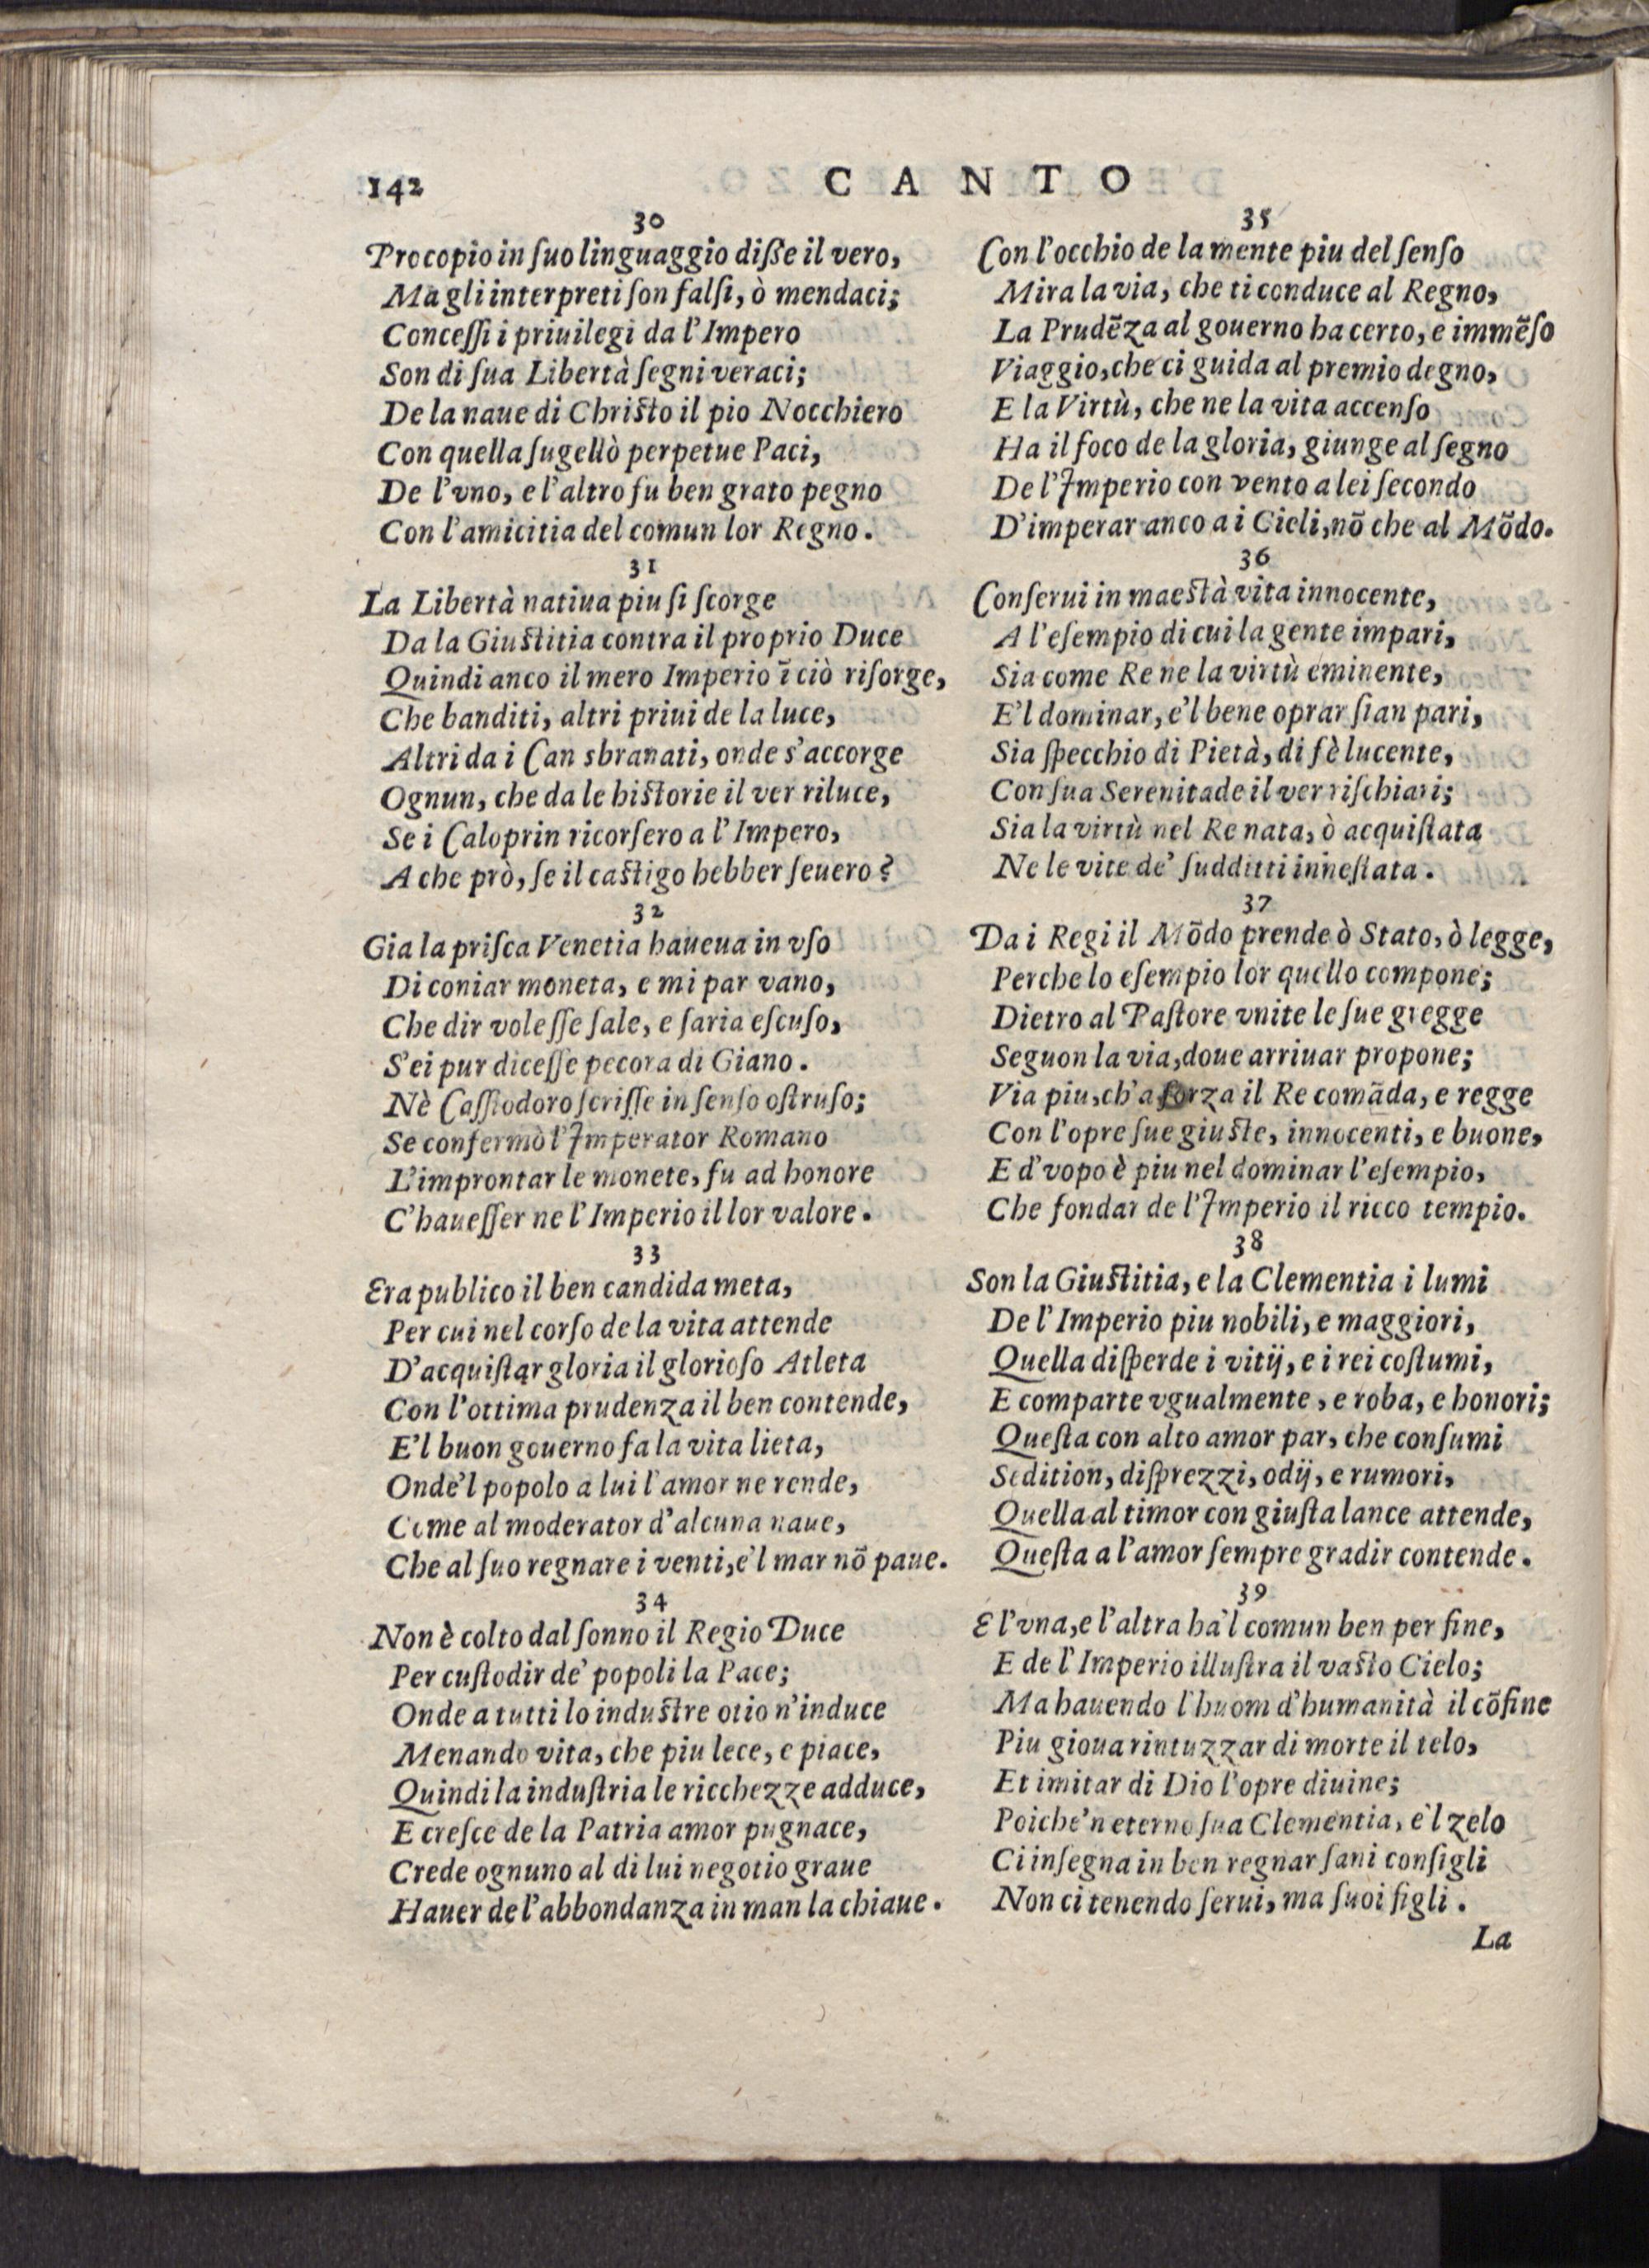 142
CANTO
30
Procopio in ſuo linguaggio diſſe il vero,
Ma gli interpreti ſon falſi, ò mendaci;
Conceſſi i priuilegi da l'Impero
Son di ſua Libertà ſegni veraci;
De la naue di Chriſto il pio Nocchiero
Con quella ſugellò perpetue Paci,
De l'vno, e l'altro fu ben grato pegno
Con l'amicitia del comun lor Regno.
31
La Libertà natiua piu ſi ſcorge
Da la Giuſtitia contra il proprio Duce
Quindi anco il mero Imperio ĩ ciò riſorge,
Che banditi, altri priui de la luce,
Altri da i Can sbranati, onde s'accorge
Ognun, che da le hiſtorie il ver riluce,
Se i Caloprin ricorſero a l'Impero,
A che prò, ſe il caſtigo hebber ſeuero?
32
Gia la priſca Venetia haueua in vſo
Di coniar moneta, e mi par vano,
Che dir voleſſe ſale, e ſaria eſcuſo,
S'ei pur diceſſe pecora di Giano.
Nè Caſſiodoro ſcriſſe in ſenſo oſtruſo;
Se confermò l'Imperator Romano
L'improntar le monete, fu ad honore
C'haueſſer ne l'Imperio il lor valore.
33
Era publico il ben candida meta,
Per cui nel corſo de la vita attende
D'acquiſtar gloria il glorioſo Atleta
Con l'ottima prudenza il ben contende,
E'l buon gouerno fa la vita lieta,
Onde'l popolo a lui l'amor ne rende,
Come al moderator d'alcuna naue,
Che al ſuo regnare i venti, e'l mar nõ paue.
34
Non è colto dal ſonno il Regio Duce
Per cuſtodir de' popoli la Pace;
Onde a tutti lo induſtre otio n'induce
Menando vita, che piu lece, e piace,
Quindi la induſtria le ricchezze adduce,
E creſce de la Patria amor pugnace,
Crede ognuno al di lui negotio graue
Hauer de l'abbondanza in man la chiaue.
35
Con l'occhio de la mente piu del ſenſo
Mira la via, che ti conduce al Regno,
La Prudẽza al gouerno ha certo, e immẽſo
Viaggio, che ci guida al premio degno,
E la Virtù, che ne la vita accenſo
Ha il foco de la gloria, giunge al ſegno
De l'Imperio con vento a lei ſecondo
D'imperar anco a i Cieli, nõ che al Mõdo.
36
Conſerui in maeſtà vita innocente,
A l'eſempio di cui la gente impari,
Sia come Re ne la virtù eminente,
E'l dominar, e'l bene oprar ſian pari,
Sia ſpecchio di Pietà, di fè lucente,
Con ſua Serenitade il ver riſchiari;
Sia la virtù nel Re nata, ò acquiſtata
Ne le vite de' ſudditti inneſtata.
37
Da i Regi il Mõdo prende ò Stato, ò legge,
Perche lo eſempio lor quello compone;
Dietro al Paſtore vnite le ſue gregge
Seguon la via, doue arriuar propone;
Via piu, ch'a forza il Re comãda, e regge
Con l'opre ſue giuſte, innocenti, e buone,
E d'vopo è piu nel dominar l'eſempio,
Che fondar de l'Imperio il ricco tempio.
38
Son la Giuſtitia, e la Clementia i lumi
De l'Imperio piu nobili, e maggiori,
Quella diſperde i vitij, e i rei coſtumi,
E comparte vgualmente, e roba, e honori;
Queſta con alto amor par, che conſumi
Sedition, diſprezzi, odij, e rumori,
Quella al timor con giuſta lance attende,
Queſta a l'amor ſempre gradir contende.
39
E l'vna, e l'altra ha'l comun ben per fine,
E de l'Imperio illuſtra il vaſto Cielo;
Ma hauendo l'huom d'humanità il cõfine
Piu gioua rintuzzar di morte il telo,
Et imitar di Dio l'opre diuine;
Poiche'n eterno ſua Clementia, e'l zelo
Ci inſegna in ben regnar ſani conſigli
Non ci tenendo ſerui, ma ſuoi figli.
La